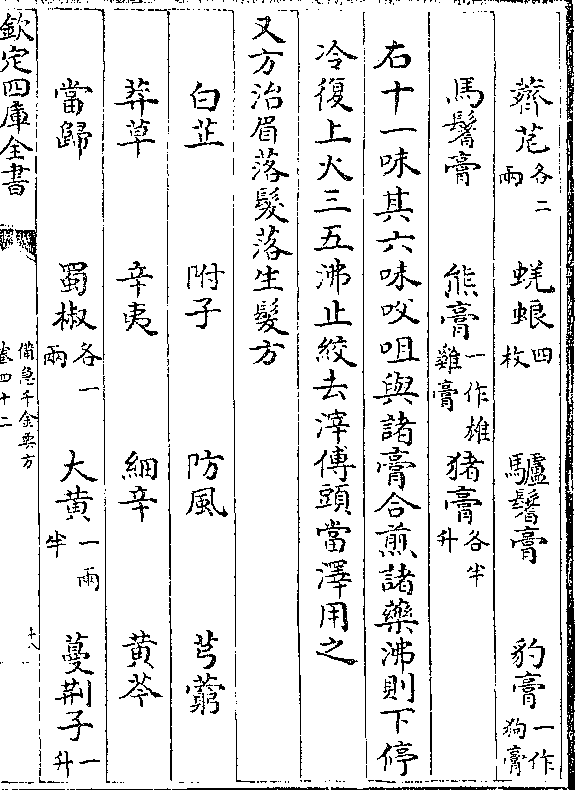 薺苨各二兩　蜣蜋四枚　驢鬐膏　豹膏一作狗膏
馬鬐膏　熊膏一作雄雞膏　猪膏各半升
右十一味其六味㕮咀與諸膏合煎諸藥沸則下停
冷復上火三五沸止絞去滓傅頭當澤用之
又方治眉落髮落生髮方
白芷　附子　防風　芎藭
莽草　辛夷　細辛　黄芩
當歸　蜀椒各一兩　大黄一兩半　蔓荆子一升
欽定四庫全書
備急千金要方
卷四十二
十八